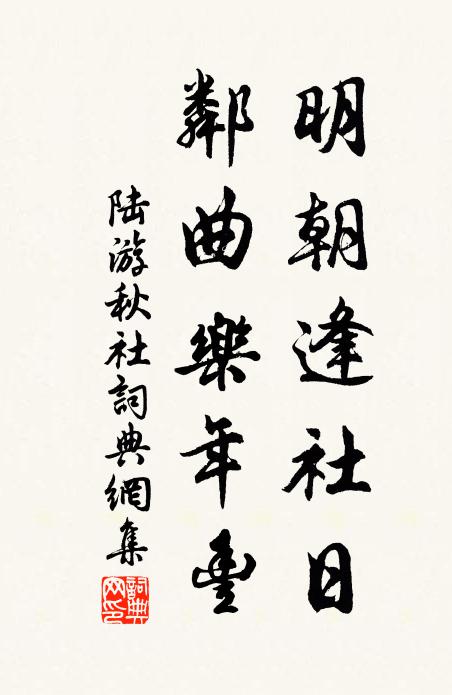 明朝逢社日
鄰曲樂年豐
陆游秋社詞典網集
詞典網印